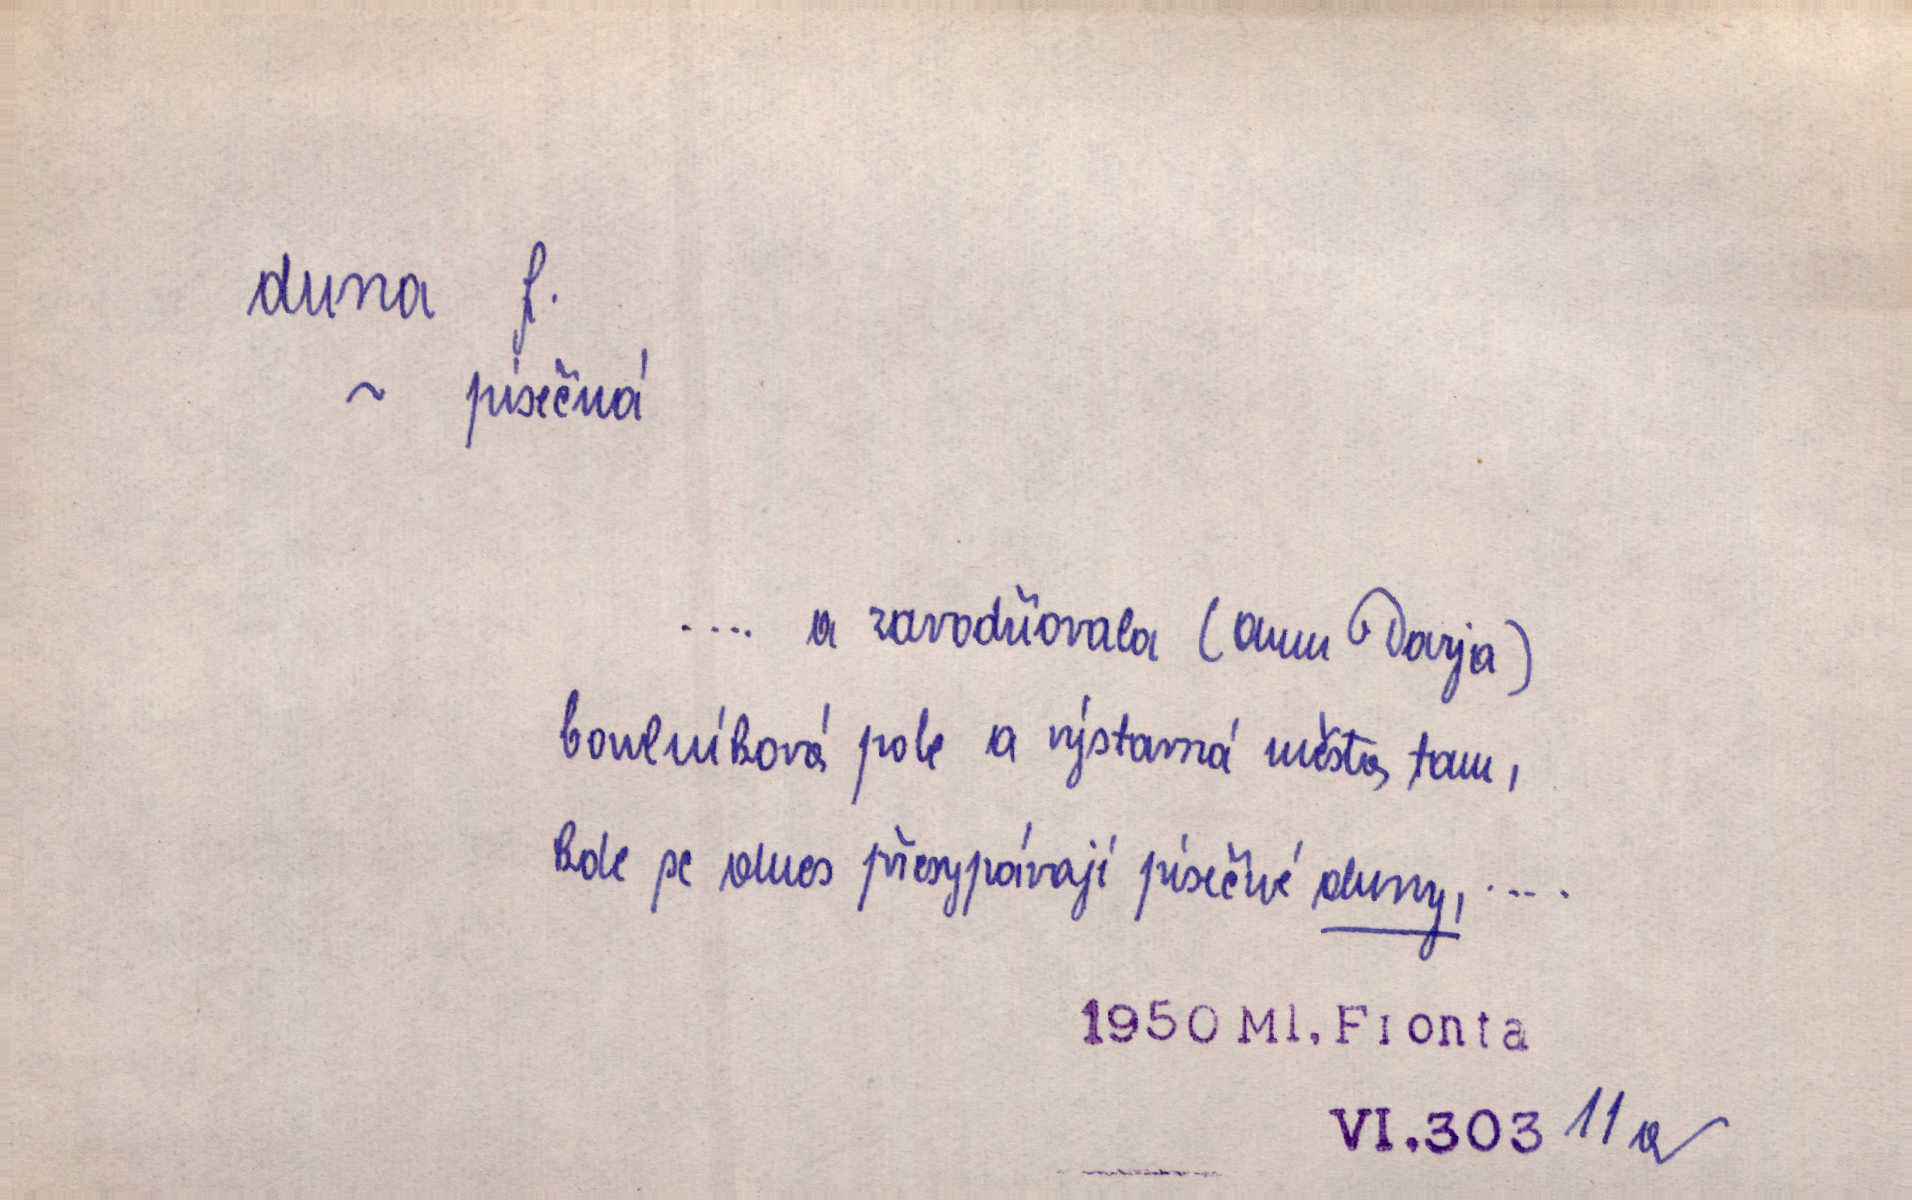 duna f.
~ písečná
.... a zavodňovala (Amu Darja)
bavlníková pole a výstavná města, tam,
kde se dnes přesypávají písečné duny, ....
1950 Ml. Fronta
VI.303 11a